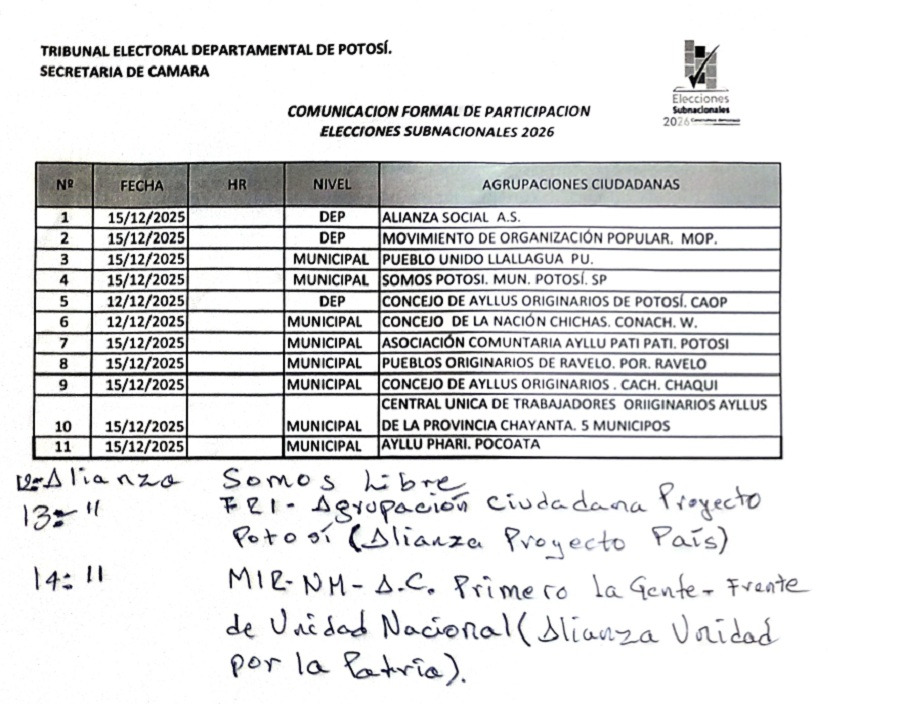 TRIBUNAL ELECTORAL DEPARTAMENTAL DE POTOSÍ.
SECRETARIA DE CAMARA
Elecciones
Subnacionales
2026
COMUNICACION FORMAL DE PARTICIPACION
ELECCIONES SUBNACIONALES 2026
Nº FECHA HR NIVEL AGRUPACIONES CIUDADANAS
1 15/12/2025 DEP ALIANZA SOCIAL A.S.
2 15/12/2025 DEP MOVIMIENTO DE ORGANIZACIÓN POPULAR. MOP.
3 15/12/2025 MUNICIPAL PUEBLO UNIDO LLALLAGUA PU.
4 15/12/2025 MUNICIPAL SOMOS POTOSI. MUN. POTOSÍ. SP
5 12/12/2025 DEP CONCEJO DE AYLLUS ORIGINARIOS DE POTOSÍ. CAOP
6 12/12/2025 MUNICIPAL CONCEJO DE LA NACIÓN CHICHAS. CONACH. W.
7 15/12/2025 MUNICIPAL ASOCIACIÓN COMUNTARIA AYLLU PATI PATI. POTOSI
8 15/12/2025 MUNICIPAL PUEBLOS ORIGINARIOS DE RAVELO. POR. RAVELO
9 15/12/2025 MUNICIPAL CONCEJO DE AYLLUS ORIGINARIOS . CACH. CHAQUI
CENTRAL UNICA DE TRABAJADORES ORIIGINARIOS AYLLUS
10 15/12/2025 MUNICIPAL DE LA PROVINCIA CHAYANTA. 5 MUNICIPOS
11 15/12/2025 MUNICIPAL AYLLU PHARI. POCOATA
12=Alianza Somos Libre
13= " FRI- Agrupación Ciudadana Proyecto
Potosí (Alianza Proyecto País)
14= " MIR-NM- A.C. Primero la Gente- Frente
de Unidad Nacional (Alianza Unidad
por la Patria).